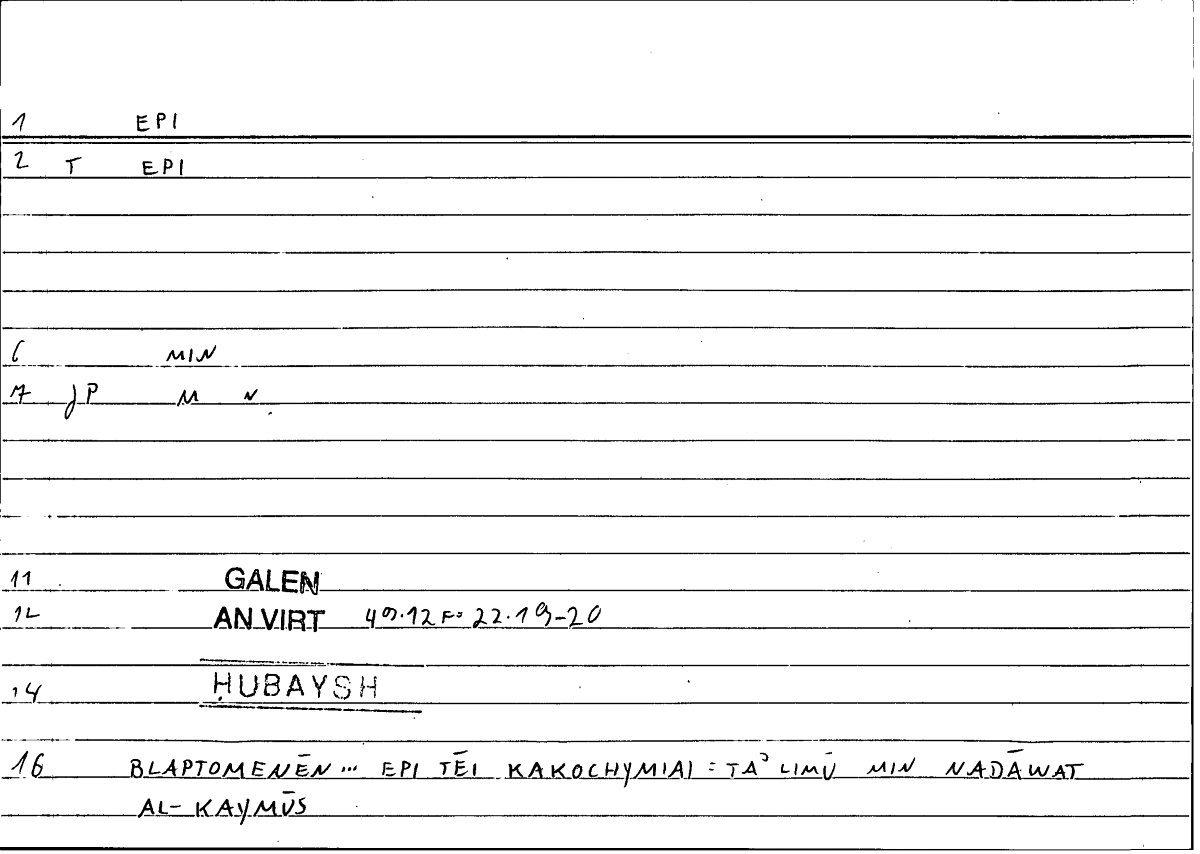 1 EPI
2 T EPI
6 MIN
7 JP M N
11 GALEN
12 AN VIRT 49.12 F= 22.19-20
14 ḤUBAYSH
16 BLAPTOMENĒN... EPI TĒI KAKOCHYMIAI = TAʾLIMŪ MIN NADĀWAT
AL-KAYMŪS